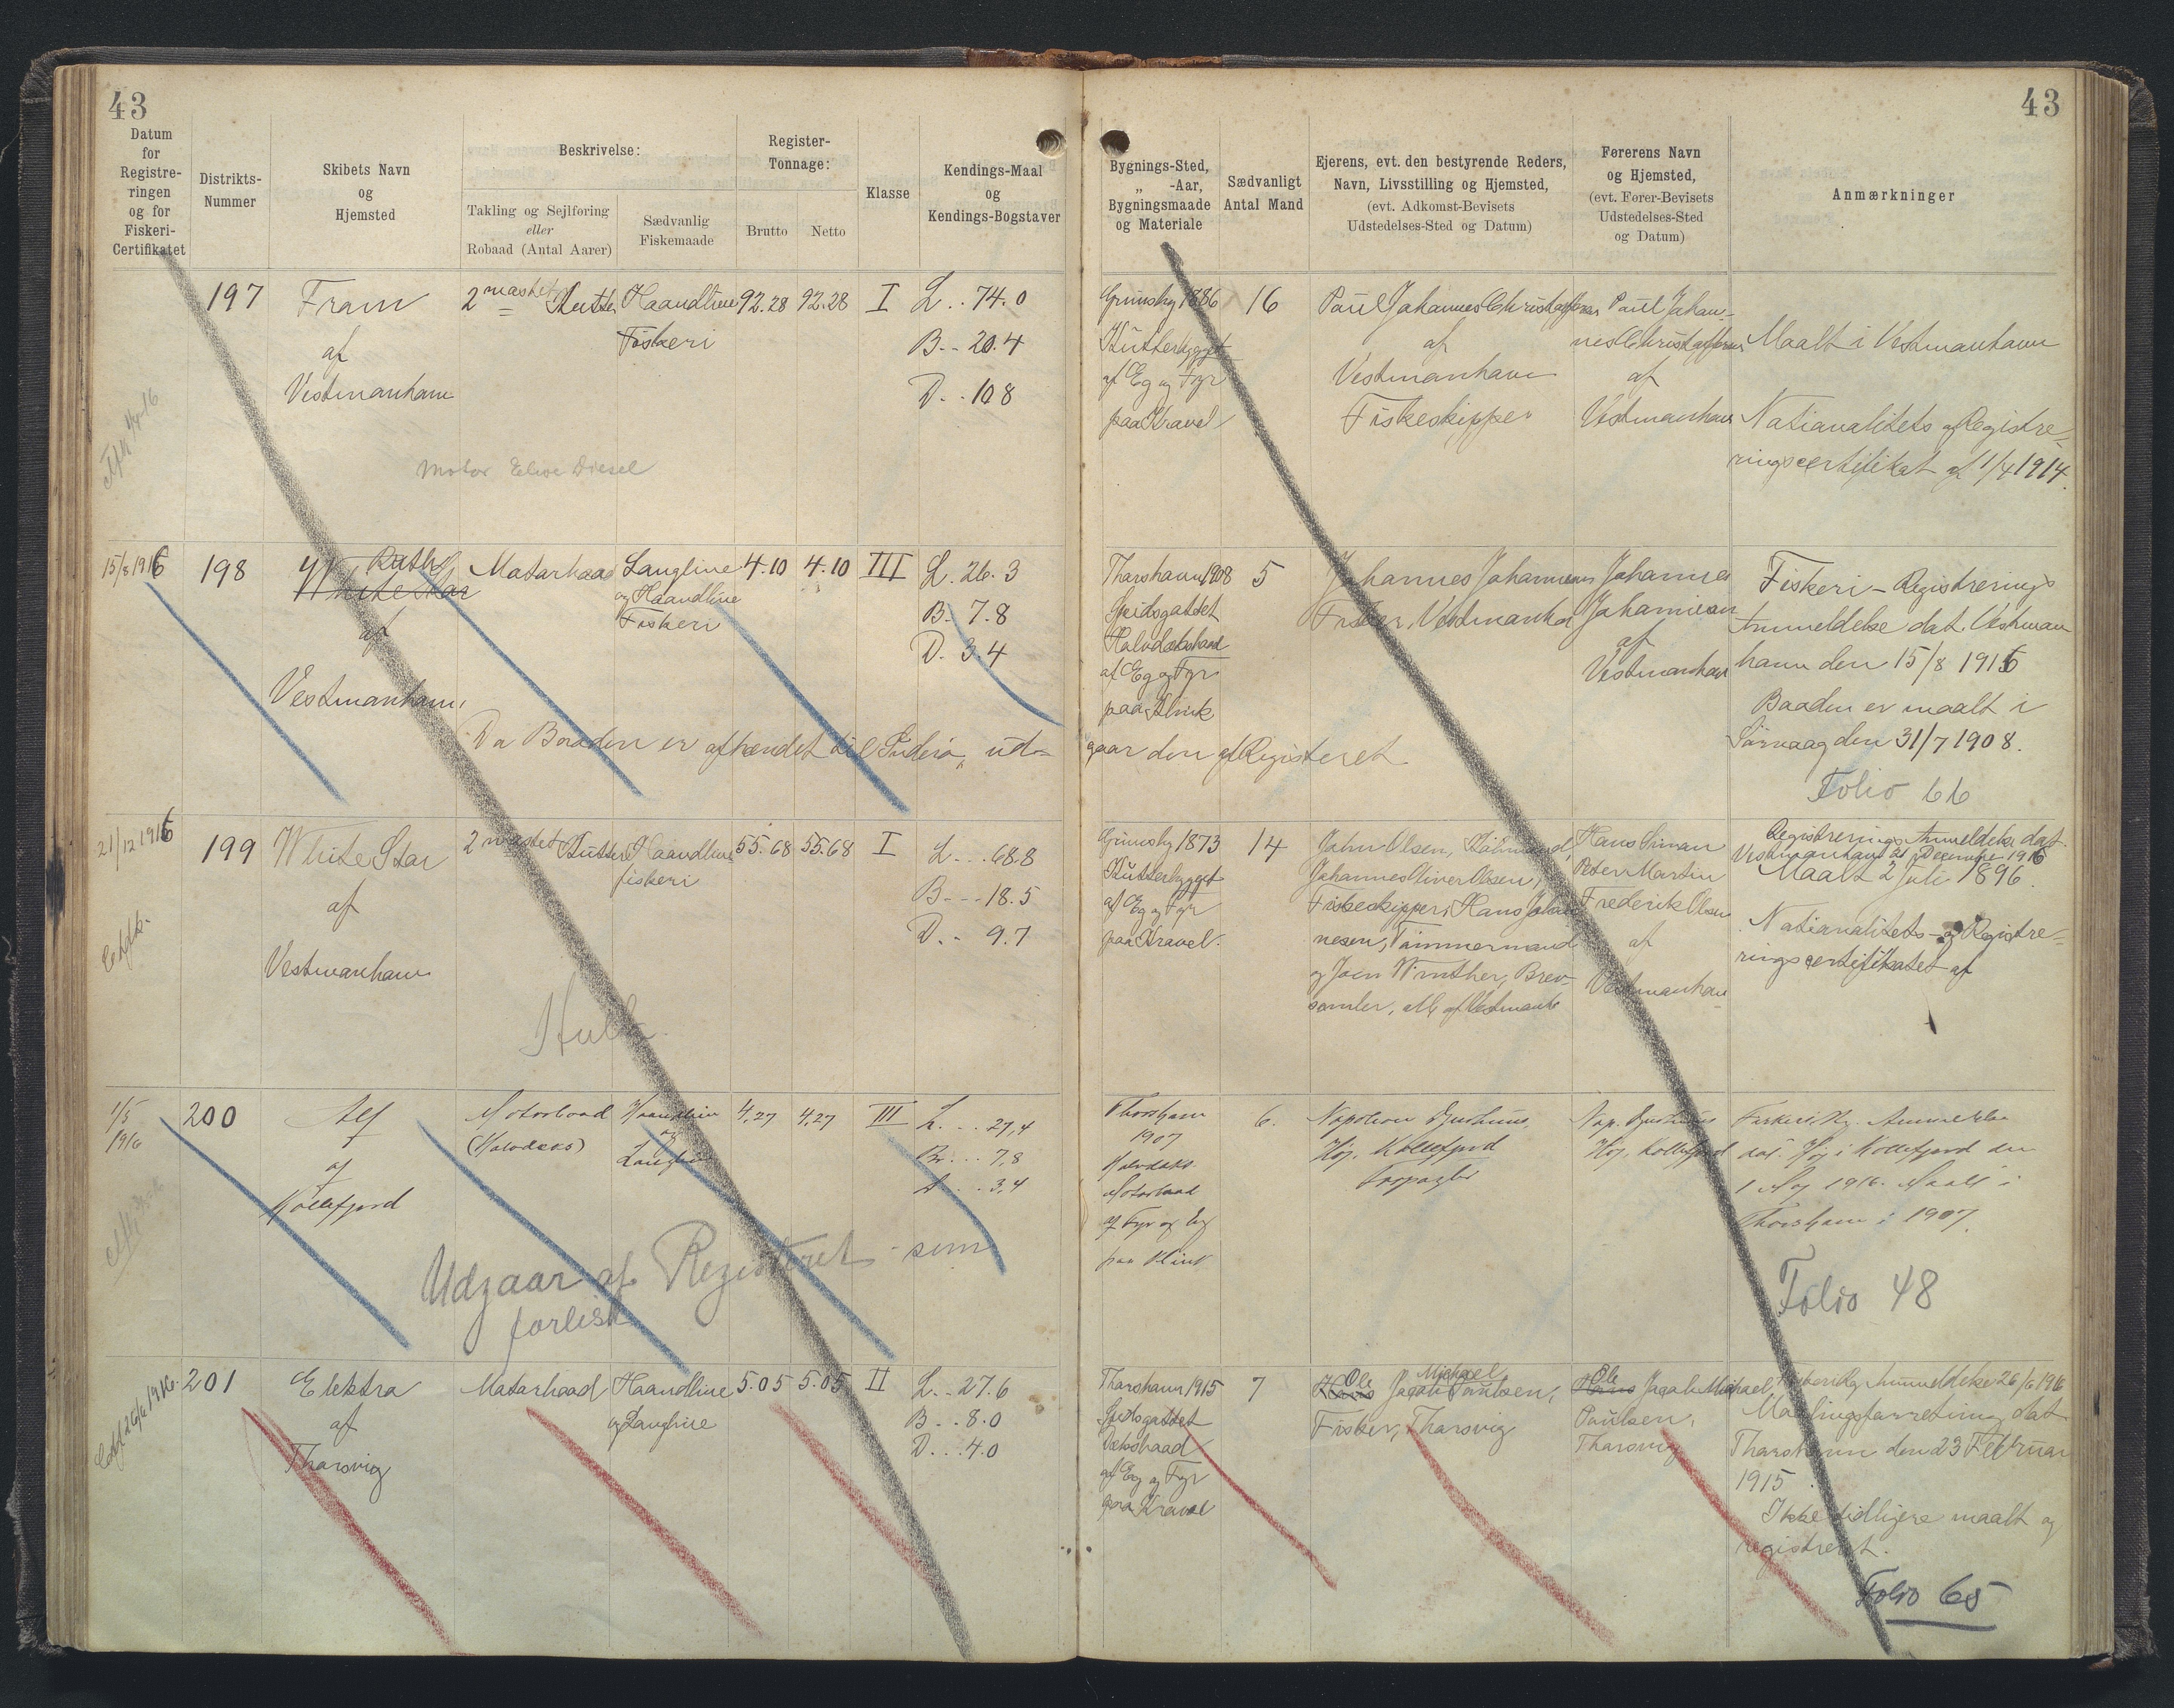 43
43
Datum
for
Registre-
ringen
og for
Fiskeri-
Certifikatet
Distrikts-
Nummer
Skibets Navn
og
Hjemsted
Beskrivelse:
Takling og Sejlføring
eller
Robaad (Antal Aarer)
Sædvanlig
Fiskemaade
Register-
Tonnage:
Brutto
Netto
Klasse
Kendings-Maal
og
Kendings-Bogstaver
Bygnings-Sted,
„ -Aar,
Bygningsmaade
og Materiale
Sædvanligt
Antal Mand
Ejerens, evt. den bestyrende Reders,
Navn, Livsstilling og Hjemsted,
(evt. Adkomst-Bevisets
Udstedelses-Sted og Datum)
Førerens Navn
og Hjemsted,
(evt. Fører-Bevisets
Udstedelses-Sted
og Datum)
Anmærkninger
197
Fram
af
Vestmanhavn
2 mastet Kutter
Haandline
Fiskeri
92.28
92.28
I
L. . 74.0
B. - 20.4
D. . 10 8
Motor Diesel
Grimsby 1886
Kutterbygget
af Eg og Fyr
paa Kravel
16
Paul Johannes Christoffersen
af
Vestmanhavn
Fiskeskipper
Paul Johan-
nes Christoffersen
af
Vestmanhavn
Maalt i Vestmanhavn
Nationalitets og Registre-
ringscertifikat af 1/4 1914.
15/8 1916
198
Ruth
White Star
af
Vestmanhavn
Motorbaad
Langline
og Haandline
Fiskeri
4.10
4.10
III
L. 26. 3
B. 7.8
D. 3.4
Da Baaden er afhændet til Suderö, ud-
gaar den af Registeret
Thorshavn 1908
Spidsgattet
Halvdæksbaad
af Eg og Fyr
paa Klink
5
Johannes Johannesen
Fisker, Vestmanhavn
Johannes
Johannesen
af
Vestmanhavn
Fiskeri - Registrerings
Anmeldelse dat. Vestman
havn den 15/8 1916
Baaden er maalt i
Sörvaag den 31/7 1908.
Folio 66
21/12 1916
199
White Star
af
Vestmanhavn
2 mastet Kutter
Haandline
fiskeri
55.68
55.68
I
L. . . 68.8
B. - - - 18.5
D. - 9.7
Grimsby 1873
Kutterbygget
af Eg og Fyr
paa Kravel.
14
John Olsen, Købmand,
Johannes Oliver Olsen,
Fiskeskipper, Hans Johan
nesen, Tømmermand
og Joen Winther, Brev-
samler, alle af Vestmanh
Hans Simon
Peter Martin
Frederik Olsen
af
Vestmanhavn
Registrerings Anmeldelse dat.
Vestmanhavn 21 December 1916
Maalt 2 Juli 1896.
Nationalitets- og Registre-
ringscertifikatet af
1/5
1916
200
Alf
af
Kollefjord
Motorbaad
(Halvdæks)
Haandline
og
Langline
4,27
4,27
III
L. . . . 27,4
Br. . . . 7,8
D . . . 3,4
Udgaar af Registeret - som
forlist
Thorshavn
1907
Halvdæks
Motorbaad
af Fyr og Eg
paa Klink
6.
Napoleon Djurhuus,
Høj, Kollefjord
Nap. Djurhuus
Høj, Kollefjord
Fiskeri. Rg. Anmeldelse
dat. Høj i Kollefjord den
1 Maj 1916. Maalt i
Thorshavn i 1907.
Folio 48
26/6 1916.
201
Elektra
af
Thorsvig
Motorbaad
Haandline
og Langline
5.05
5.05
II
L. . 27.6
B . . 8.0
D . . . 4.0
Thorshavn 1915
Spidsgattet
Dæksbaad
af Eg og Fyr
paa Kravel
7
Ole Michael
Hans Jacob Poulsen,
Fisker, Thorsvig
Ole
Hans Jacob Michael
Poulsen,
Thorsvig
Anmeldelse 26/6 1916
Maalingsforretning dat
Thorshavn den 23 Februar
1915.
Ikke tidligere maalt og
registreret.
Folio 65